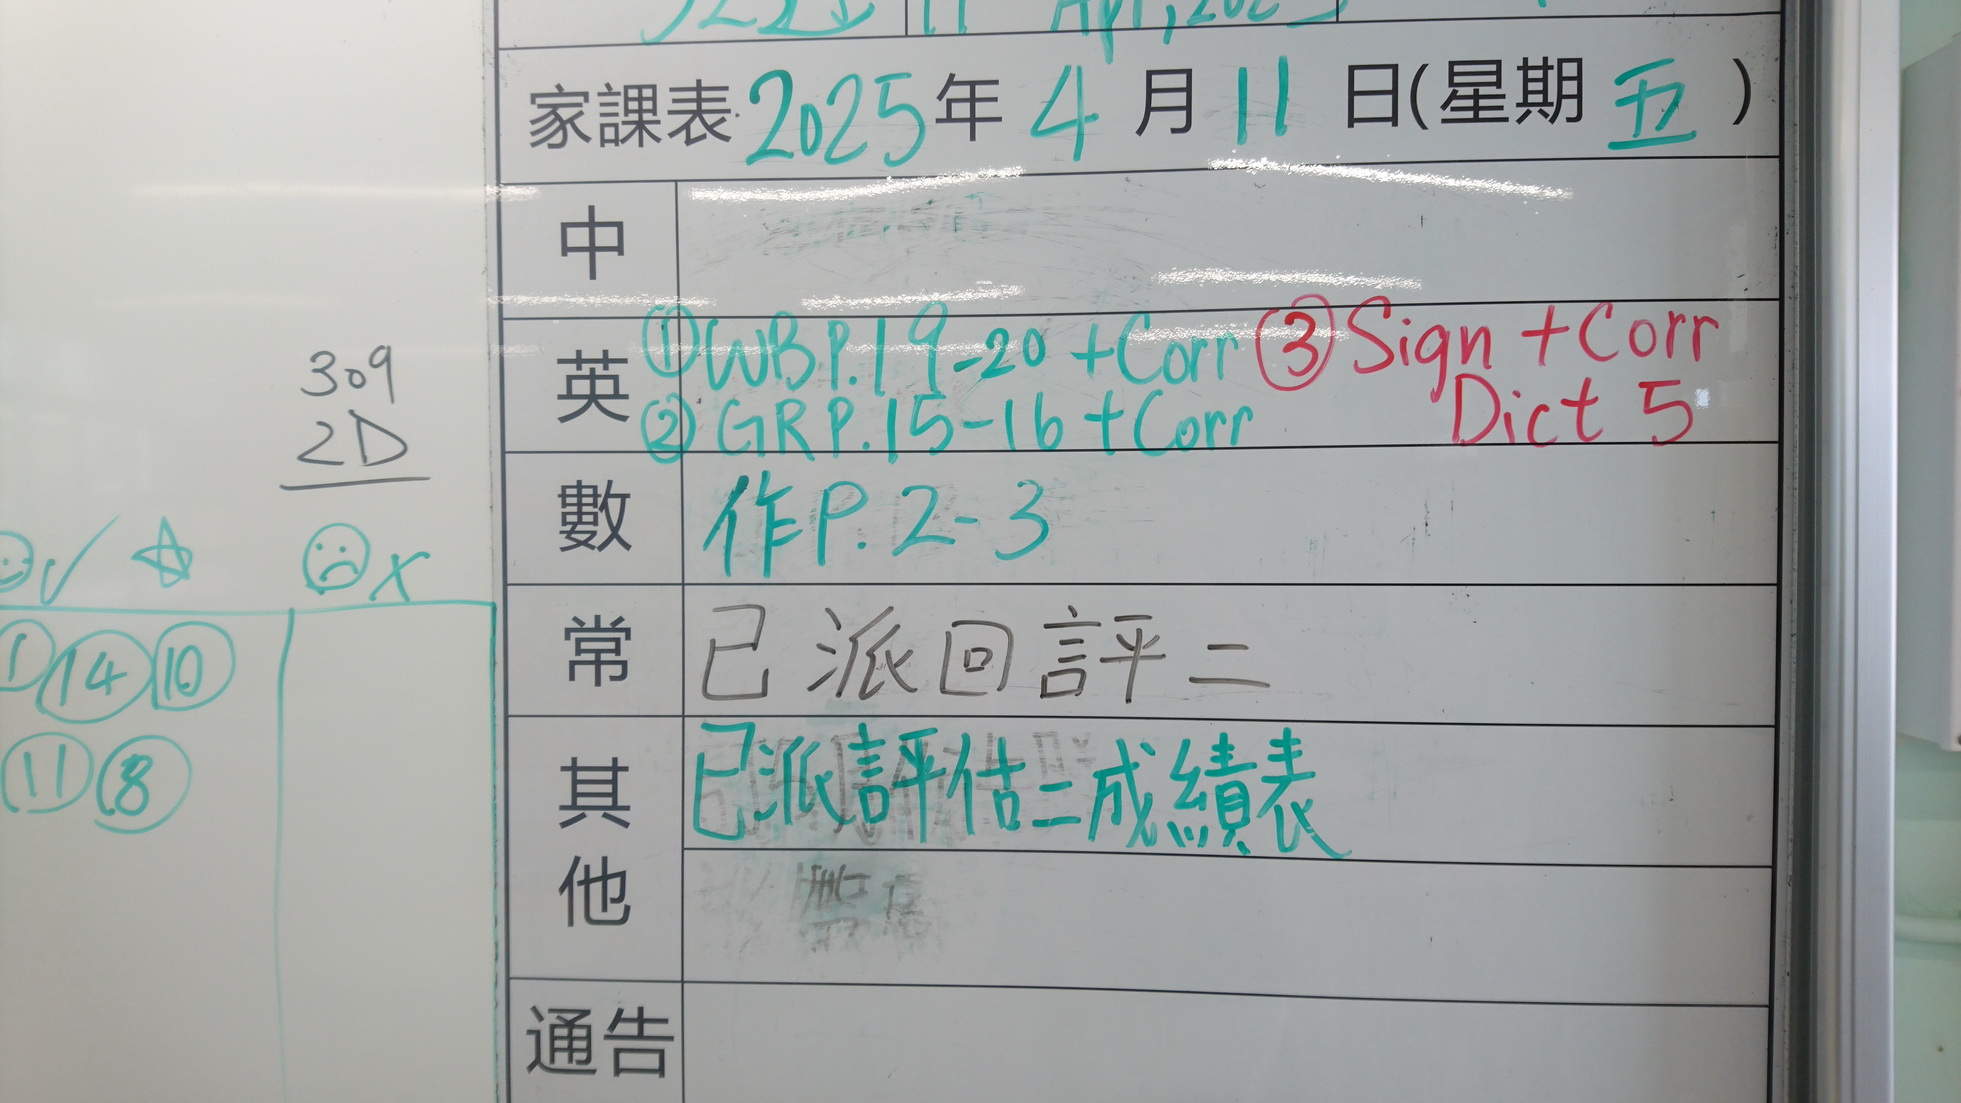 11 Apr, 2025
家課表 2025年 4 月 11 日(星期 五 )
中
英 ① WB P.19-20 +Corr ③ Sign + Corr
② GR P.15-16 + Corr Dict 5
數 作 P. 2-3
常 已派回評二
其他 已派評估二成績表
通告
309
2D
✓ ☆ ☹ X
① ⑭ ⑩
⑪ ⑧